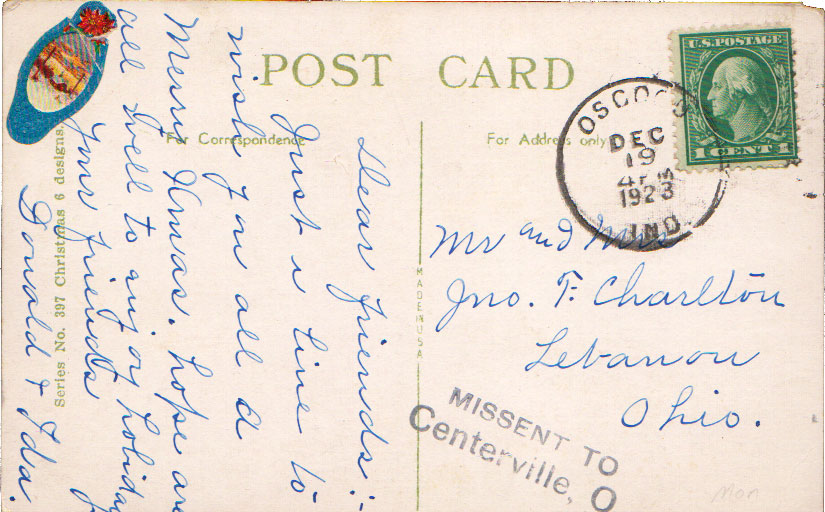 POST CARD
For Correspondence
For Address only
Dear friends:-
Just a line to
wish you all a
Merry Xmas. hope are
all well to enjoy holiday
Your friends
Donald + Ida.
Series No. 397 Christmas 6 designs.
MADE IN USA
U.S. POSTAGE
1 CENT
DEC
19
4 PM
1923
IND.
Mr and Mrs
Jno. F. Charlton
Lebanon
Ohio.
MISSENT TO
Centerville, O
Mon